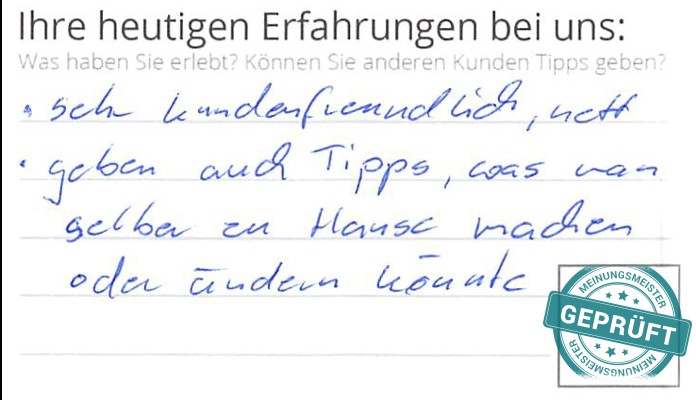 Ihre heutigen Erfahrungen bei uns:
Was haben Sie erlebt? Können Sie anderen Kunden Tipps geben?
• sehr kundenfreundlich, nett
• geben auch Tipps, was man
selber zu Hause machen
oder ändern könnte
MEINUNGSMEISTER
GEPRÜFT
MEINUNGSMEISTER